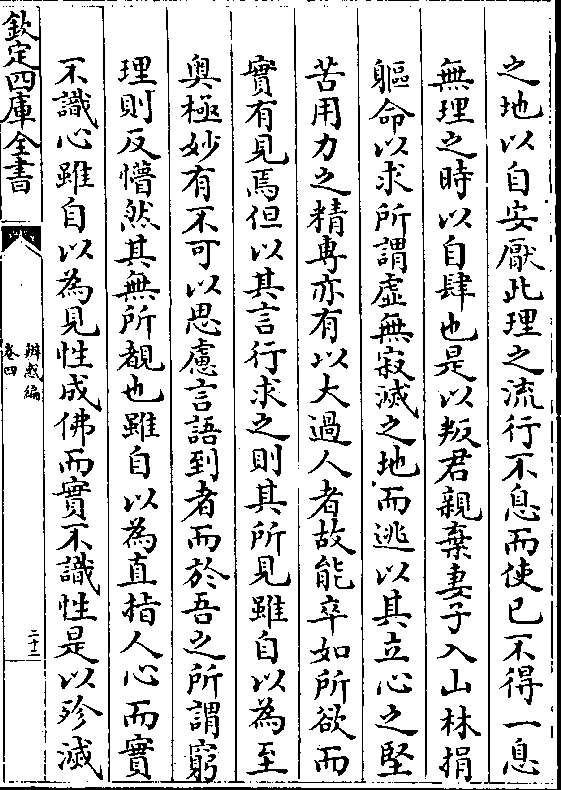 之地以自安厭此理之流行不息而使已不得一息
無理之時以自肆也是以叛君親棄妻子入山林捐
軀命以求所謂虛無寂滅之地而逃以其立心之堅
苦用力之精專亦有以大過人者故能卒如所欲而
實有見焉但以其言行求之則其所見雖自以為至
奥極妙有不可以思慮言語到者而於吾之所謂窮
理則反懵然其無所覩也雖自以為直指人心而實
不識心雖自以為見性成佛而實不識性是以殄滅
欽定四庫全書
辨惑編
卷四
二十二